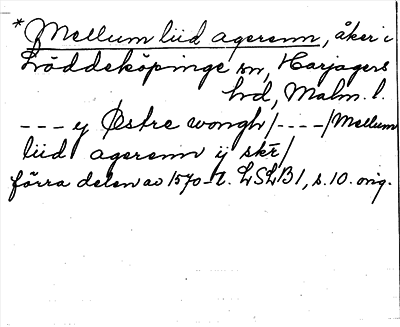 * Mellum liid agerenn, åker i
Löddeköpinge sn, Harjagers
hd, Malm. l.
--- y Østre wongh/----/Mellum
liid agerenn ij skr/
förra delen av 1570-t. LSLB1, s. 10. orig.